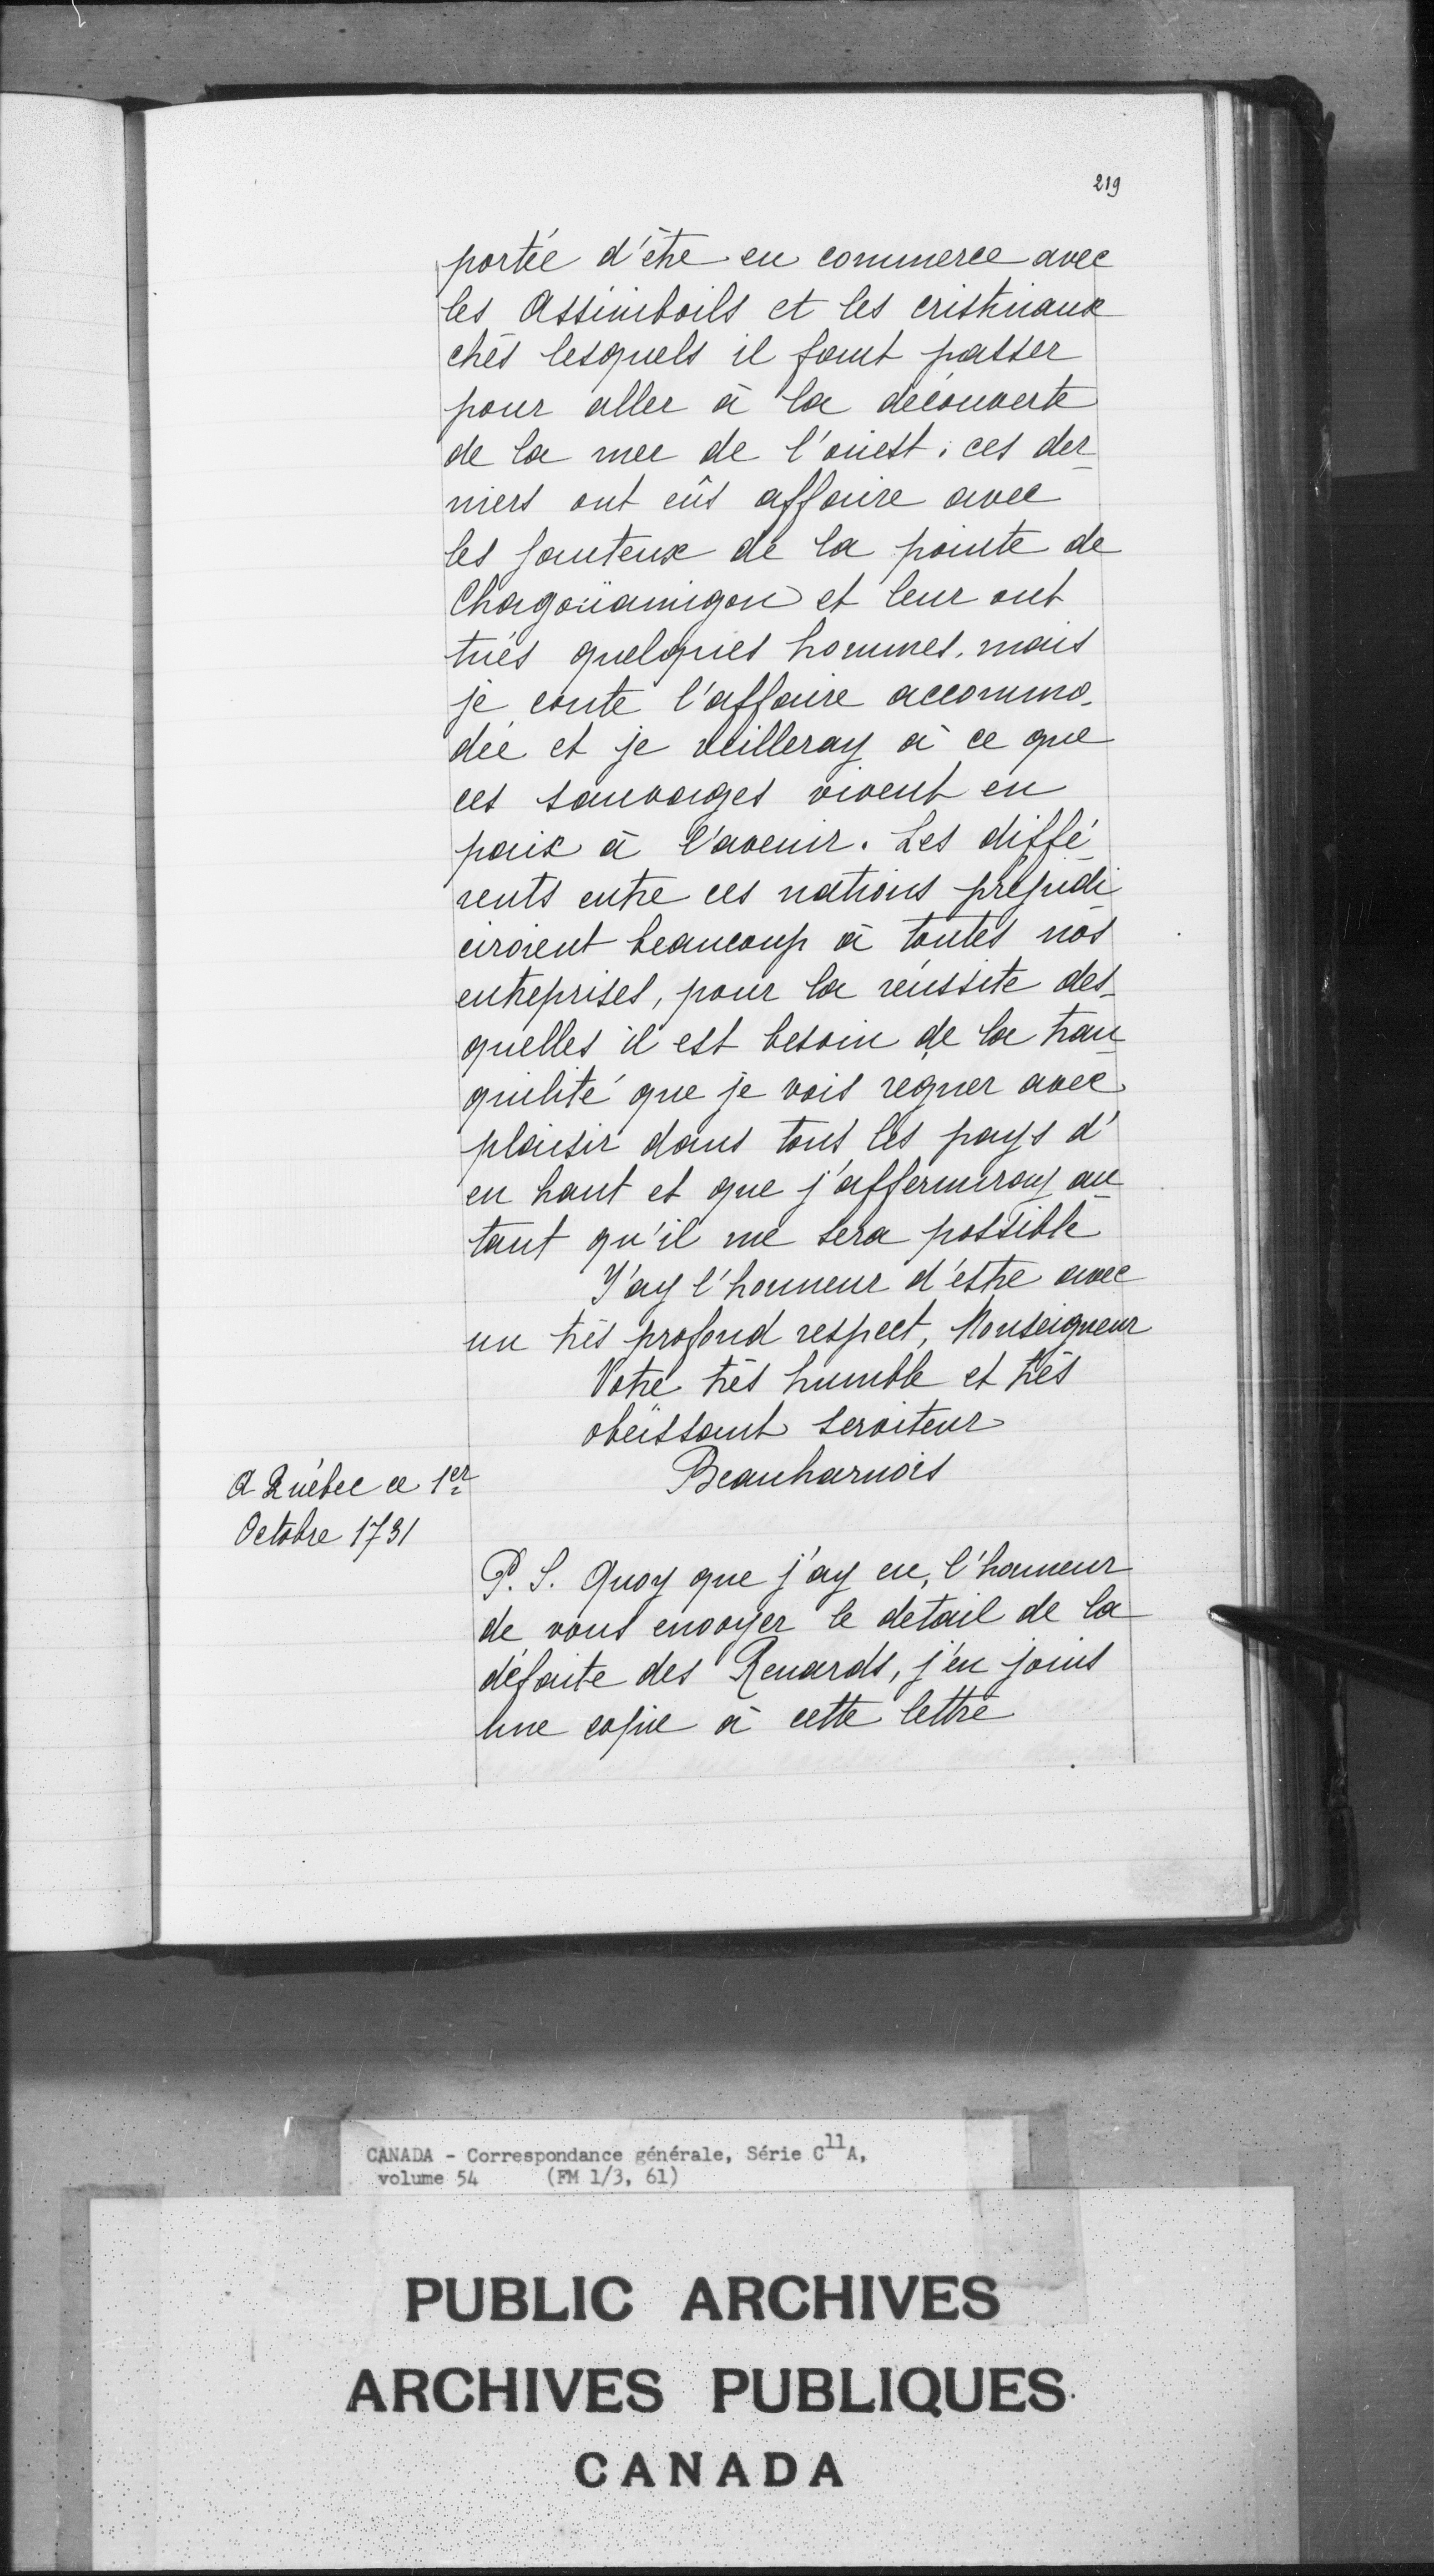 219
portée d'être en commerce avec
les Assiniboils et les cristinaux
chés lesquels il faut passer
pour aller à la découverte
de la mer de l'ouest; ces der_
niers ont eûs affaire avec
les sauteux de la pointe de
Chagoüamigon et leur ont
tués quelques hommes, mais
je conte l'affaire accommo_
dée et je veilleray à ce que
ces sauvages vivent en
paix à l'avenir. Les diffé_
rents entre ces nations préjudi_
ciroient beaucoup à toutes nos
entreprises, pour la réussite des_
quelles il est besoin de la tran_
quilité que je vois regner avec
plaisir dans tous les pays d'
en haut et que j'affermiray au_
tant qu'il me sera possible
J'ay l'honneur d'estre avec
un très profond respect, Monseigneur
Votre très humble et très
obeïssant serviteur
Beauharnois
A Québec ce 1er
Octobre 1731
P. S. Quoy que j'ay eu, l'honneur
de vous envoyer le détail de la
défaite des Renards, j'en joins
une copie à cette lettre
CANADA - Correspondance générale, Série C11A,
volume 54 (FM 1/3, 61)
PUBLIC ARCHIVES
ARCHIVES PUBLIQUES
CANADA